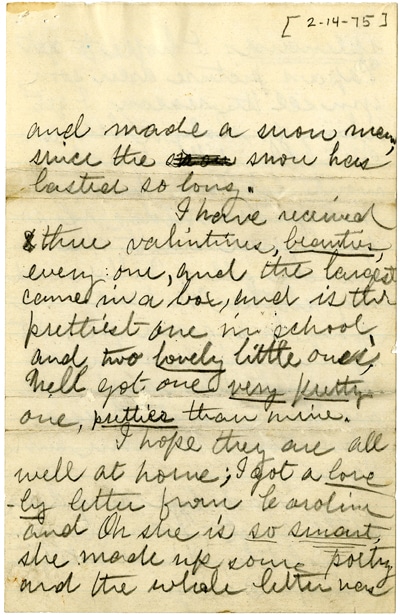 [2-14-75]
and made a snow man,
since the snow snow has
lasted so long.
I have received
three valintines, beauties,
every one, and the largest
came in a box, and is the
prettiest one in school,
and two lovely little ones,
Nell got one very pretty
one, prettier than mine.
I hope they are all
well at home; I got a love
-ly letter from Caroline
and Oh she is so smart,
she made up some poetry
and the whole letter was